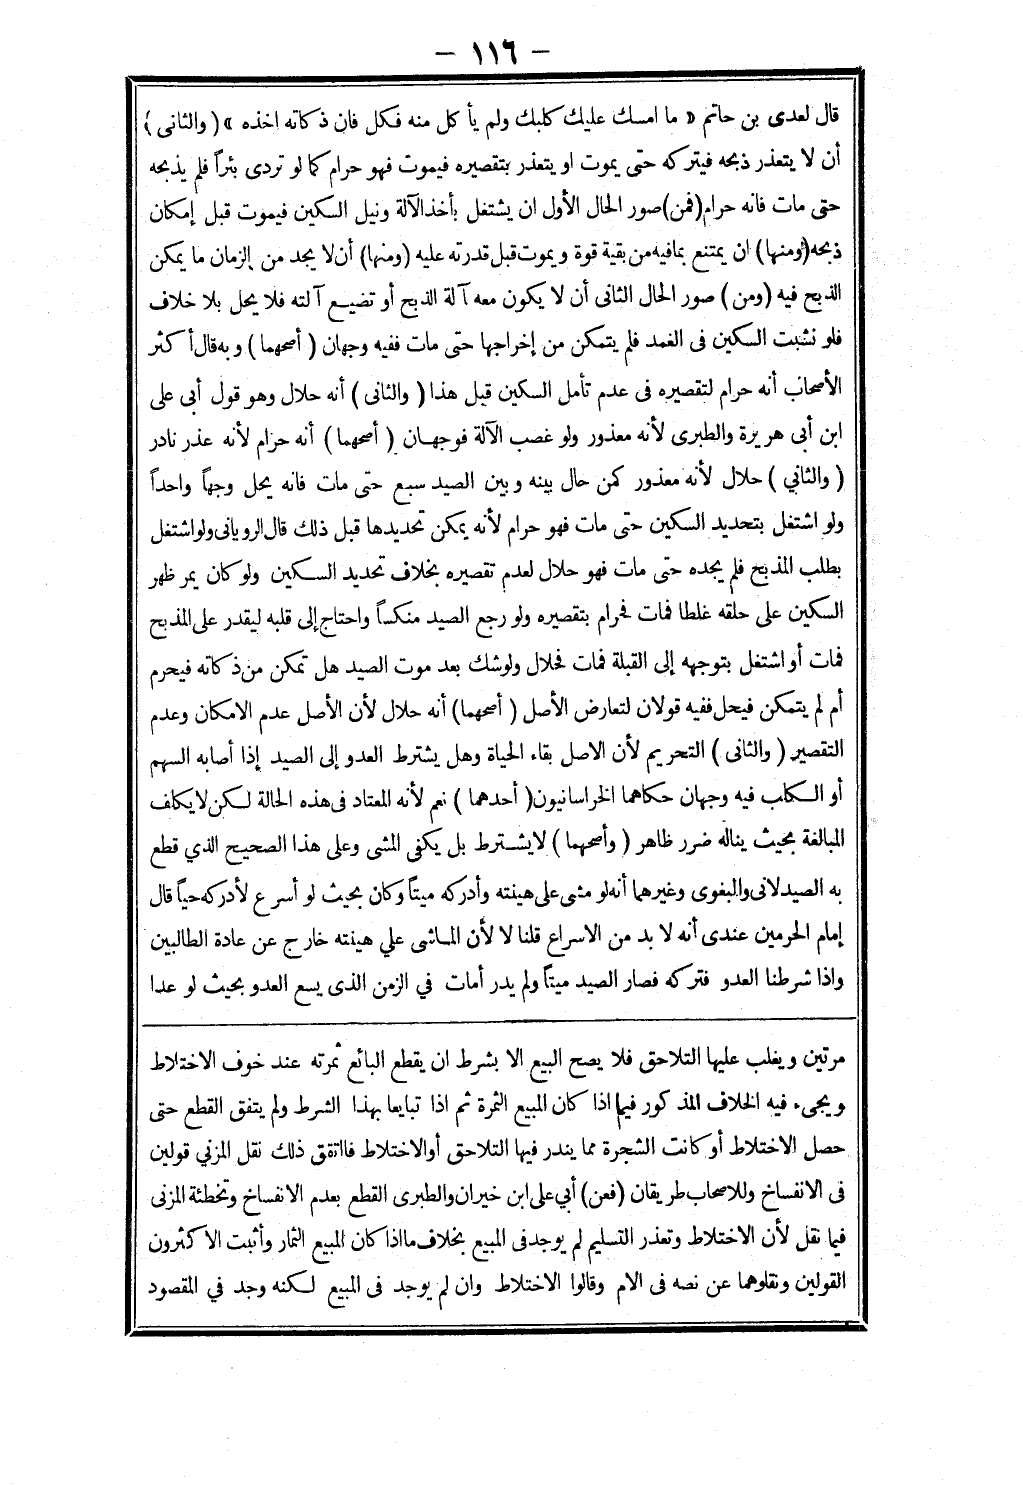 – ١١٦ –
قال لعدى بن حاتم « ما امسك عليك كلبك ولم يأ كل منه فكل فان ذكاته اخذه » ( والثانى )
أن لا يتعذر ذبحه فيتركه حتى يموت او يتعذر بتقصيره فيموت فهو حرام كما لو تردى بئراً فلم يذبحه
حتى مات فانه حرام (فمن) صور الحال الأول ان يشتغل بأخذ الآلة ونيل السكين فيموت قبل إمكان
ذبحه (ومنها) ان يمتنع بمافيه من بقية قوة ويموت قبل قدرته عليه (ومنها) أن لا يجد من الزمان ما يمكن
الذبح فيه (ومن) صور الحال الثانى أن لا يكون معه آلة الذبح أو تضيع آلته فلا يحل بلا خلاف
فلو نشبت السكين فى الغمد فلم يتمكن من إخراجها حتى مات ففيه وجهان ( أصحهما ) وبه قال أكثر
الأصحاب أنه حرام لتقصيره فى عدم تأمل السكين قبل هذا ( والثانى ) أنه حلال وهو قول أبى على
ابن أبى هريرة والطبرى لأنه معذور ولو غصب الآلة فوجهان ( أصحهما ) أنه حرام لأنه عذر نادر
( والثاني ) حلال لأنه معذور كمن حال بينه وبين الصيد سبع حتى مات فانه يحل وجهاً واحداً
ولو اشتغل بتحديد السكين حتى مات فهو حرام لأنه يمكن تحديدها قبل ذلك قال الرويانى ولو اشتغل
بطلب المذبح فلم يجده حتى مات فهو حلال لعدم تقصيره بخلاف تحديد السكين ولو كان يمر ظهر
السكين على حلقه غلطا فمات فحرام بتقصيره ولو رجع الصيد منكساً واحتاج إلى قلبه ليقدر على المذبح
فمات أو اشتغل بتوجهه إلى القبلة فمات فحلال ولو شك بعد موت الصيد هل تمكن من ذكاته فيحرم
أم لم يتمكن فيحل ففيه قولان لتعارض الأصل ( أصحهما) أنه حلال لأن الأصل عدم الامكان وعدم
التقصير ( والثانى ) التحريم لأن الاصل بقاء الحياة وهل يشترط العدو إلى الصيد إذا أصابه السهم
أو الكاب فيه وجهان حكاهما الخراسانيون ( أحدهما ) نعم لأنه المعتاد فى هذه الحالة لكن لا يكلف
المبالغة بحيث يناله ضرر ظاهر ( وأصحهما ) لا يشترط بل يكفى المشى وعلى هذا الصحيح الذي قطع
به الصيدلانى والبغوى وغيرهما أنه لو مشى على هينته وأدركه ميتاً وكان بحيث لو أسرع لأدركه حياً قال
إمام الحرمين عندى أنه لا بد من الاسراع قلنا لا لأن الماشى علي هينته خارج عن عادة الطالبين
واذا شرطنا العدو فتركه فصار الصيد ميتاً ولم يدر أمات في الزمن الذى يسع العدو بحيث لو عدا
مرتين ويغلب عليها التلاحق فلا يصح البيع الا بشرط ان يقطع البائع ثمرته عند خوف الاختلاط
ويجىء فيه الخلاف المذكور فيما اذا كان المبيع الثمرة ثم اذا تبايعا بهذا الشرط ولم يتفق القطع حتى
حصل الاختلاط أو كانت الشجرة مما يندر فيها التلاحق أو الاختلاط فاتفق ذلك نقل المزني قولين
فى الانفساخ وللاصحاب طريقان (فعن) أبي على ابن خيران والطبرى القطع بعدم الانفساخ وتخطئة المزنى
فيما نقل لأن الاختلاط وتعذر التسليم لم يوجد فى المبيع بخلاف ما اذا كان المبيع الثمار وأثبت الاكثرون
القولين ونقلوهما عن نصه فى الام وقالوا الاختلاط وان لم يوجد فى المبيع لكنه وجد في المقصود